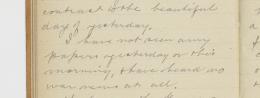 contrast to the beautiful
day of yesterday.
I have not seen any
papers yesterday or this
morning, & have heard no
war news at all.